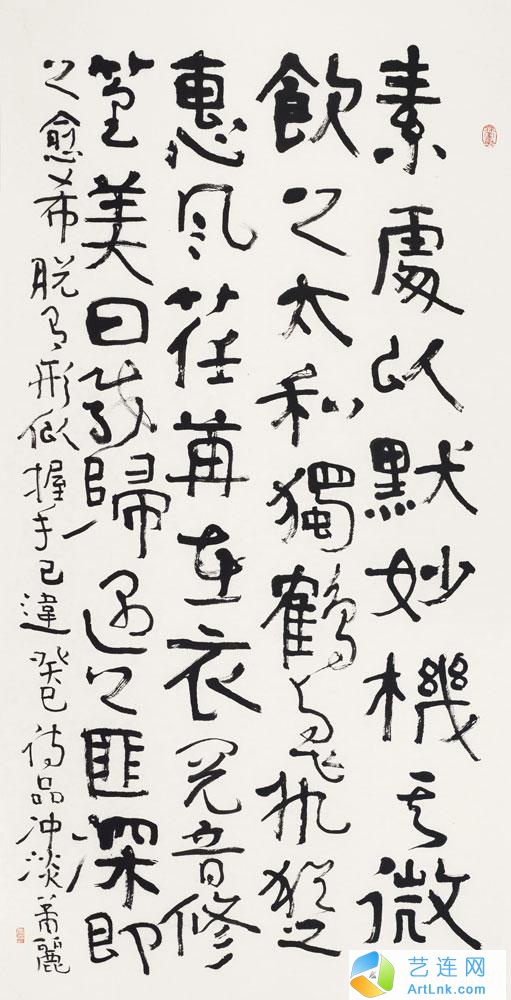 素處以默妙機其微
飲之太和獨鶴与飛执猶之
惠风荏苒在衣阅音修
篁美曰載歸遇之匪深即
之愈希脱有形似握手已違癸巳诗品冲淡麗
艺连网
ArtLnk.com